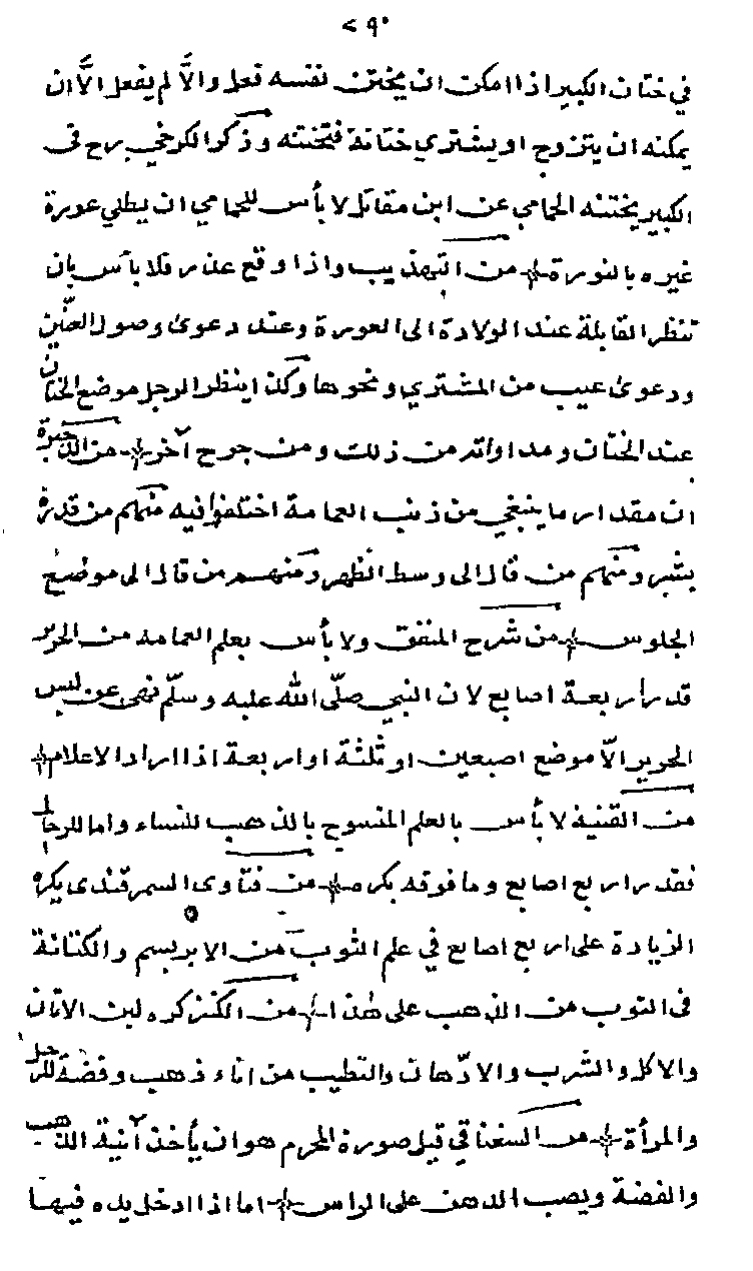 ٢٩٠
في ختان الكبير اذا امكن ان يختتن نفسه فعل والّا لم يفعل الّا ان
يمكنه ان يتزوج او يشتري ختانة فتختنه وذكر الكرخي رح في
الكبير يختنه الحمامي عن ابن مقاتل لا بأس للحمامي ان يطلي عورة
غيره بالنورة من التهذيب واذا وقع عذر فلا بأس بان
تنظر القابلة عند الولادة الى العورة وعند دعوى وصول العنّين
ودعوى عيب من المشتري ونحوها وكذا ينظر الرجل موضع الختان
عند الختان ومداواته من ذلك ومن جرح آخر من الذخيرة
ان مقدار ما ينبغي من ذنب العمامة اختلفوا فيه منهم من قدره
بشبر ومنهم من قال الى وسط الظهر ومنهم من قال الى موضع
الجلوس من شرح المتفق ولا بأس بعلم العمامه من الحرير
قدر اربعة اصابع لان النبي صلّى الله عليه وسلّم نهى عن لبس
الحرير الّا موضع اصبعين او ثلثة او اربعة اذا اراد الاعلام
من القنية لا بأس بالعلم المنسوج بالذهب للنساء واما للرجال
فقدر اربع اصابع وما فوقه يكره من فتاوى السمرقندى يكره
الزيادة على اربع اصابع في علم الثوب من الابريسم والكتابة
فى الثوب من الذهب على هذا من الكنز كره لبن الاتان
والاكل والشرب والادّهان والتطيب من اناء ذهب وفضة للرجل
والمرأة من السغناقي قيل صورة المحرم هو ان يأخذ آنية الذهب
والفضة ويصب الدهن على الراس اما اذا ادخل يده فيها